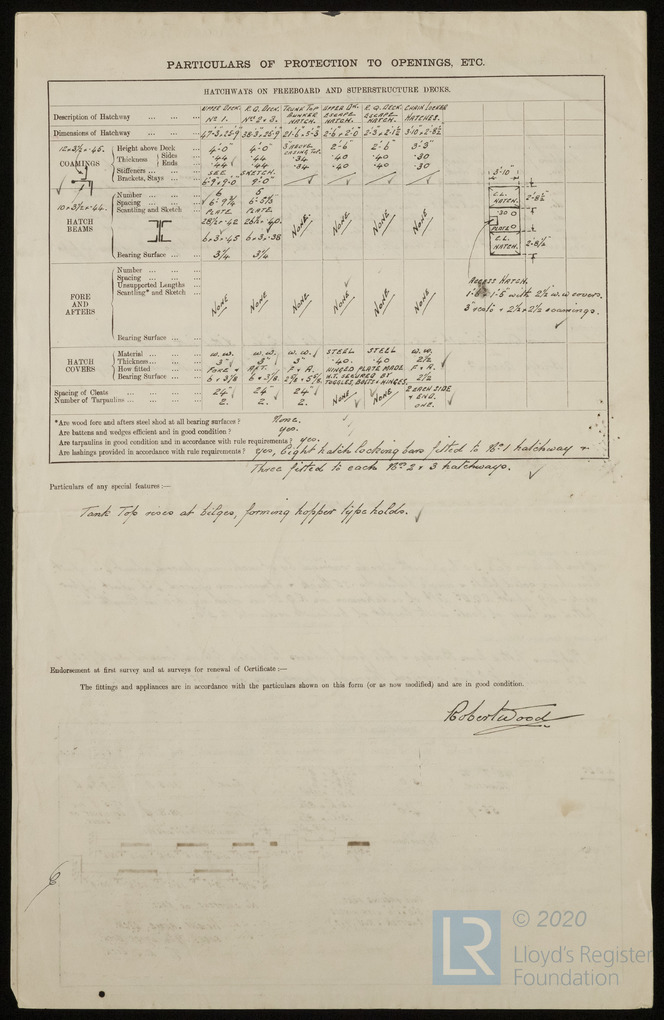 PARTICULARS OF PROTECTION TO OPENINGS, ETC.
HATCHWAYS ON FREEBOARD AND SUPERSTRUCTURE DECKS.
Description of Hatchway ... ... ... UPPER DECK. No 1. R.Q. DECK. Nos 2 & 3. TRUNK TOP BUNKER HATCH. UPPER DK. ESCAPE HATCH. R.Q. DECK. ESCAPE HATCH. CHAIN LOCKER HATCHES.
Dimensions of Hatchway ... ... ...
COAMINGS
Height above Deck ... 4'-0" 4'-0" 3" ABOVE CASING TOP. 2'-6" 2'-6" 3'-3"
Thickness { Sides ... .44 .44 .34 .40 .40 .30
Ends ... .44 .44 .34 .40 .40 .30
Stiffeners ... ... ... SEE SKETCH.
Brackets, Stays ... ... 6'-9" & 9'-0" 9'-0"
HATCH BEAMS
Number ... ... ... 6 5 NONE. NONE NONE NONE
Spacing ... ... ...
Scantling and Sketch ... PLATE PLATE
6 x 3 x .45 6 x 3 x .38
Bearing Surface ... ... 3¼ 3¼
3'-10"
C.L. HATCH.
PLATE
C.L. HATCH.
2'-8½"
2'-8½"
FORE AND AFTERS
Number ... ... ...
Spacing ... ... ...
Unsupported Lengths ...
Scantling* and Sketch ... NONE NONE NONE NONE NONE NONE
Bearing Surface ... ...
ACCESS HATCH.
1'-6" x 1'-6" with 2½" w.w covers.
HATCH COVERS
Material ... ... ... W.W. W.W. W.W. STEEL STEEL W.W.
Thickness ... ... ... 3" 3" 3" .40. .40 2½
How fitted ... ... FORE & AFT. F. & A. HINGED PLATE MADE F. & A.
Bearing Surface ... ... W.T. SECURED BY TOGGLES, BOLTS & HINGES.
Spacing of Cleats ... ... ... ... 24" 24" 24" NONE NONE 2 EACH SIDE & END.
Number of Tarpaulins ... ... ... ... 2. 2. 2. ONE.
*Are wood fore and afters steel shod at all bearing surfaces? None.
Are battens and wedges efficient and in good condition? yes.
Are tarpaulins in good condition and in accordance with rule requirements? yes.
Are lashings provided in accordance with rule requirements? yes, Eight hatch locking bars fitted to No. 1 hatchway &
Three fitted to each Nos. 2 & 3 hatchways.
Particulars of any special features:—
Tank Top rises at bilges, forming hopper type holds.
Endorsement at first survey and at surveys for renewal of Certificate:—
The fittings and appliances are in accordance with the particulars shown on this form (or as now modified) and are in good condition.
Robert Wood
LR © 2020
Lloyd's Register
Foundation